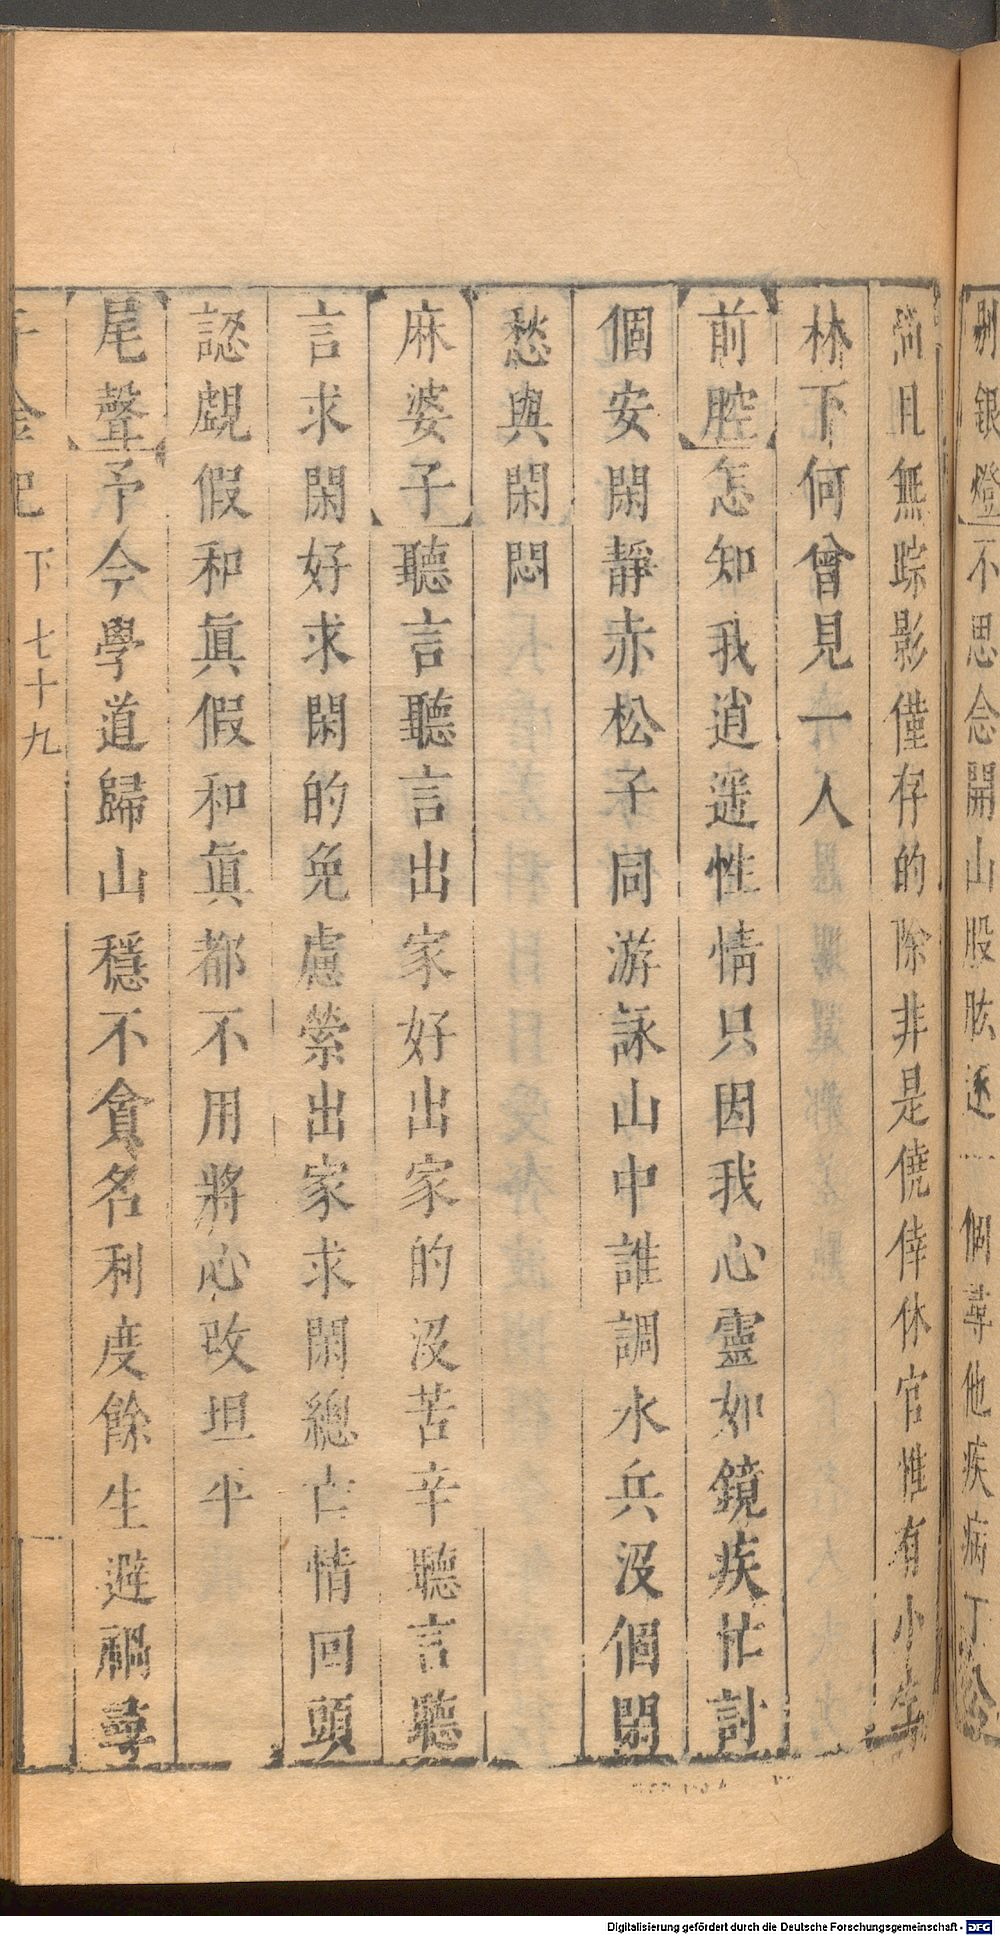 剔銀燈不思念開山股肱逐 個尋他疾病丁
尚且無踪影僅存的除非是僥倖休官惟有小
林下何曾見一人
前腔怎知我逍遥性情只因我心靈如鏡疾忙討
個安閑靜赤松子同游詠山中誰調水兵没個閑
愁與閑悶
麻婆子聽言聽言出家好出家的没苦辛聽言聽
言求閑好求閑的免慮縈出家求閑總亡情回頭
認覷假和眞假和眞都不用將心改坦平
尾聲予今學道歸山穩不貪名利度餘生避禍尋
千金記 下 七十九
Digitalisierung gefördert durch die Deutsche Forschungsgemeinschaft - DFG